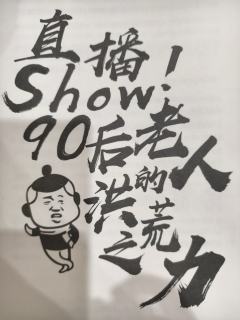 直播
Show!
90后老人
的
洪荒
之力